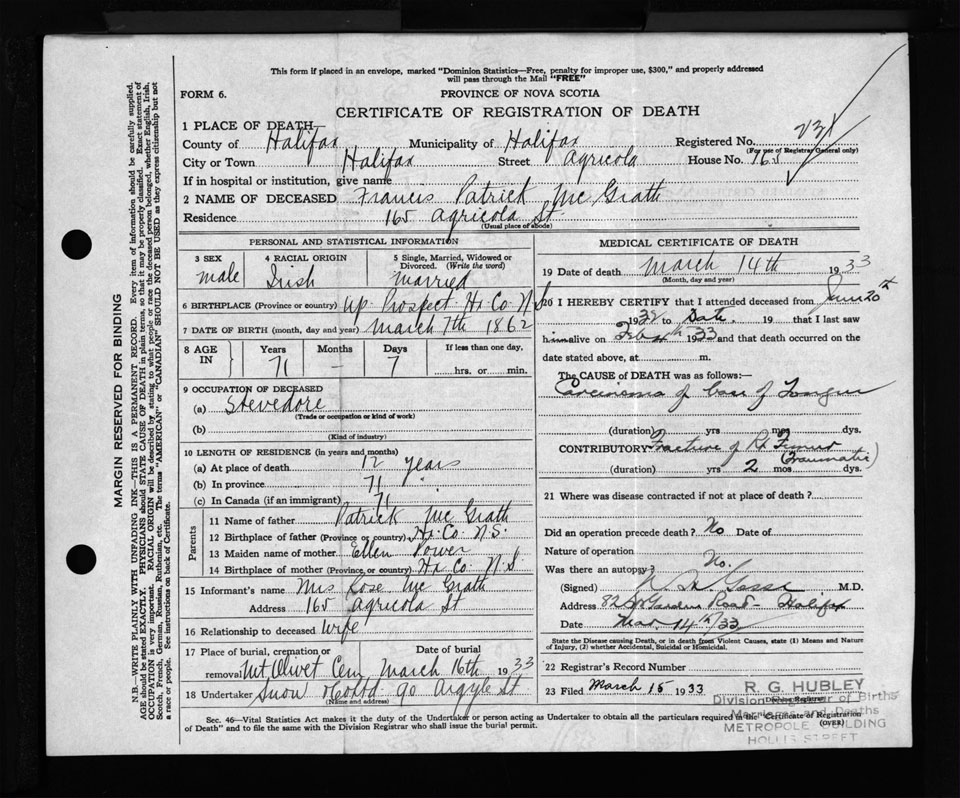 This form if placed in an envelope, marked "Dominion Statistics—Free, penalty for improper use, $300," and properly addressed
will pass through the Mail "FREE"
FORM 6.
PROVINCE OF NOVA SCOTIA
CERTIFICATE OF REGISTRATION OF DEATH
1 PLACE OF DEATH—
County of Halifax Municipality of Halifax Registered No. 231
(For use of Registrar General only)
City or Town Halifax Street Agricola House No. 165
If in hospital or institution, give name
2 NAME OF DECEASED Francis Patrick Mc Grath
Residence 165 Agricola St.
(Usual place of abode)
PERSONAL AND STATISTICAL INFORMATION
3 SEX 4 RACIAL ORIGIN 5 Single, Married, Widowed or
Divorced. (Write the word)
male Irish Married
6 BIRTHPLACE (Province or country) Up. Prospect Hx. Co. N S
7 DATE OF BIRTH (month, day and year) March 7th 1862
8 AGE IN Years Months Days If less than one day,
71 — 7 hrs. or min.
9 OCCUPATION OF DECEASED
(a) Stevedore
(Trade or occupation or kind of work)
(b)
(Kind of industry)
10 LENGTH OF RESIDENCE (in years and months)
(a) At place of death 12 years
(b) In province 71
(c) In Canada (if an immigrant) 71
Parents
11 Name of father Patrick Mc Grath
12 Birthplace of father (Province or country) Hx. Co. N.S.
13 Maiden name of mother Ellen Power
14 Birthplace of mother (Province or country) Hx Co. N.S.
15 Informant's name Mrs Rose Mc Grath
Address 165 Agricola St
16 Relationship to deceased Wife
17 Place of burial, cremation or removal Mt. Olivet Cem Date of burial March 16th 1933
18 Undertaker Snow & Co Ltd 90 Argyle St
(Name and address)
MEDICAL CERTIFICATE OF DEATH
19 Date of death March 14th 1933
(Month, day and year)
20 I HEREBY CERTIFY that I attended deceased from 20th
1932 to Date. 19 that I last saw
him alive on Feb 1933 and that death occurred on the
date stated above, at m.
The CAUSE of DEATH was as follows:—
Carcinoma of base of Tongue
(duration) yrs mos dys.
CONTRIBUTORY Fracture of Rt Femur
(Traumatic)
(duration) yrs 2 mos dys.
21 Where was disease contracted if not at place of death?
Did an operation precede death? No Date of
Nature of operation
Was there an autopsy? No.
(Signed) M.D.
Address Road - Halifax
Date Mar. 14th/33
State the Disease causing Death, or in death from Violent Causes, state (1) Means and Nature
of Injury, (2) whether Accidental, Suicidal or Homicidal.
22 Registrar's Record Number
23 Filed March 15 1933
Division Registrar
R. G. HUBLEY
Division Registrar of Births
Marriages and Deaths
METROPOLE BUILDING
HOLLIS STREET
Sec. 46—Vital Statistics Act makes it the duty of the Undertaker or person acting as Undertaker to obtain all the particulars required in the "Certificate of Registration
of Death" and to file the same with the Division Registrar who shall issue the burial permit.
(OVER)
MARGIN RESERVED FOR BINDING
N.B.—WRITE PLAINLY WITH UNFADING INK—THIS IS A PERMANENT RECORD. Every item of information should be carefully supplied.
AGE should be stated EXACTLY. PHYSICIANS should STATE CAUSE OF DEATH in plain terms, so that it may be properly classified. Exact statement of
OCCUPATION is very important. RACIAL ORIGIN will be described by stating to what people or race the deceased person belonged, whether English, Irish,
Scotch, French, German, Russian, Ruthenian, etc. The terms "AMERICAN" or "CANADIAN" SHOULD NOT BE USED as they express citizenship but not
a race or people. See instructions on back of Certificate.